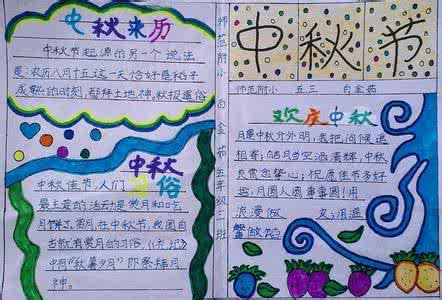 中秋来历
中秋节起源的另一个说法
是:农历八月十五这一天恰好是稻子
成熟的时刻,都拜土地神。秋报遗俗
中秋
习俗
中秋佳节,人们
最主要的活动是赏月和吃
月饼了。赏月,在中秋节,我国自
古就有赏月的习俗,《礼记》
中有“秋暮夕月”即祭拜月
神。
师范附小 白金茹 五年级三班
中秋节
师范附小 五三 白金茹
欢庆中秋
月是中秋分外明,我把问候遥
相寄;皓月当空洒清辉,中秋
良宵念挚心;祝愿佳节多好
运,月圆人圆事事圆!用
浪漫做
皮,用温
蟹做馅